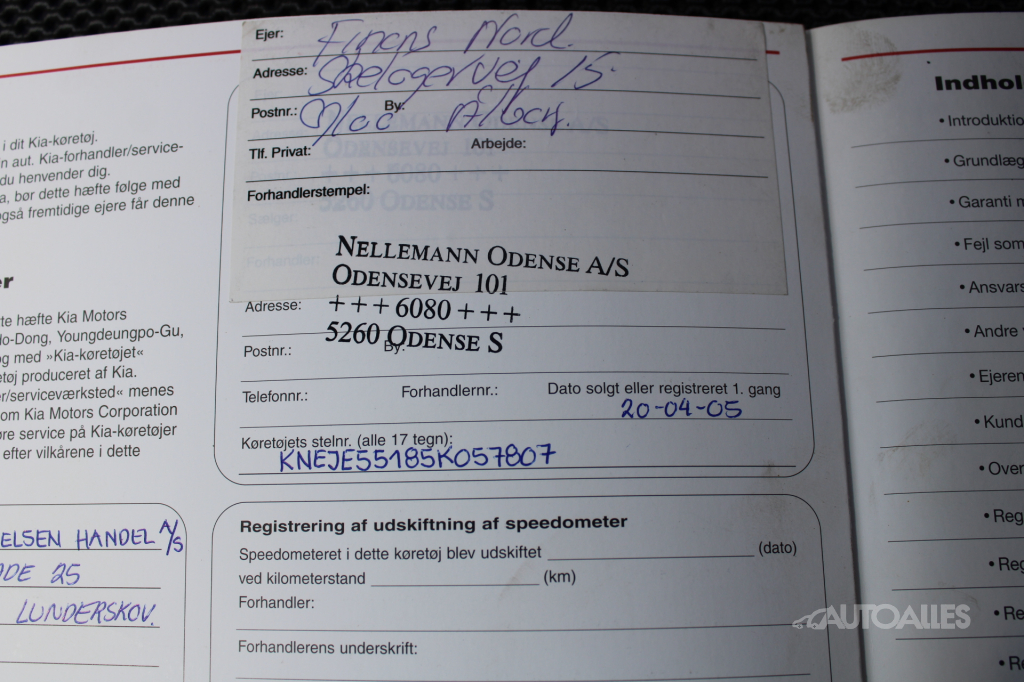 i dit Kia-køretøj.
n aut. Kia-forhandler/service-
du henvender dig.
a, bør dette hæfte følge med
også fremtidige ejere får denne
er
te hæfte Kia Motors
do-Dong, Youngdeungpo-Gu,
og med »Kia-køretøjet«
etøj produceret af Kia.
er/serviceværksted« menes
om Kia Motors Corporation
øre service på Kia-køretøjer
efter vilkårene i dette
ELSEN HANDEL A/S
DE 25
LUNDERSKOV.
Ejer: Finans Nord.
Adresse: 15.
Postnr.: By:
Tlf. Privat: Arbejde:
Forhandlerstempel:
NELLEMANN ODENSE A/S
ODENSEVEJ 101
+++6080+++
5260 ODENSE S
Adresse:
Postnr.: By:
Telefonnr.: Forhandlernr.: Dato solgt eller registreret 1. gang
20-04-05
Køretøjets stelnr. (alle 17 tegn):
KNEJE55185K057807
Registrering af udskiftning af speedometer
Speedometeret i dette køretøj blev udskiftet (dato)
ved kilometerstand (km)
Forhandler:
Forhandlerens underskrift:
Indhol
• Introduktio
• Grundlæg
• Garanti m
• Fejl som
• Ansvars
• Andre
• Ejeren
• Kund
• Over
• Reg
• Reg
• Re
• Re
• R
AUTOALLES